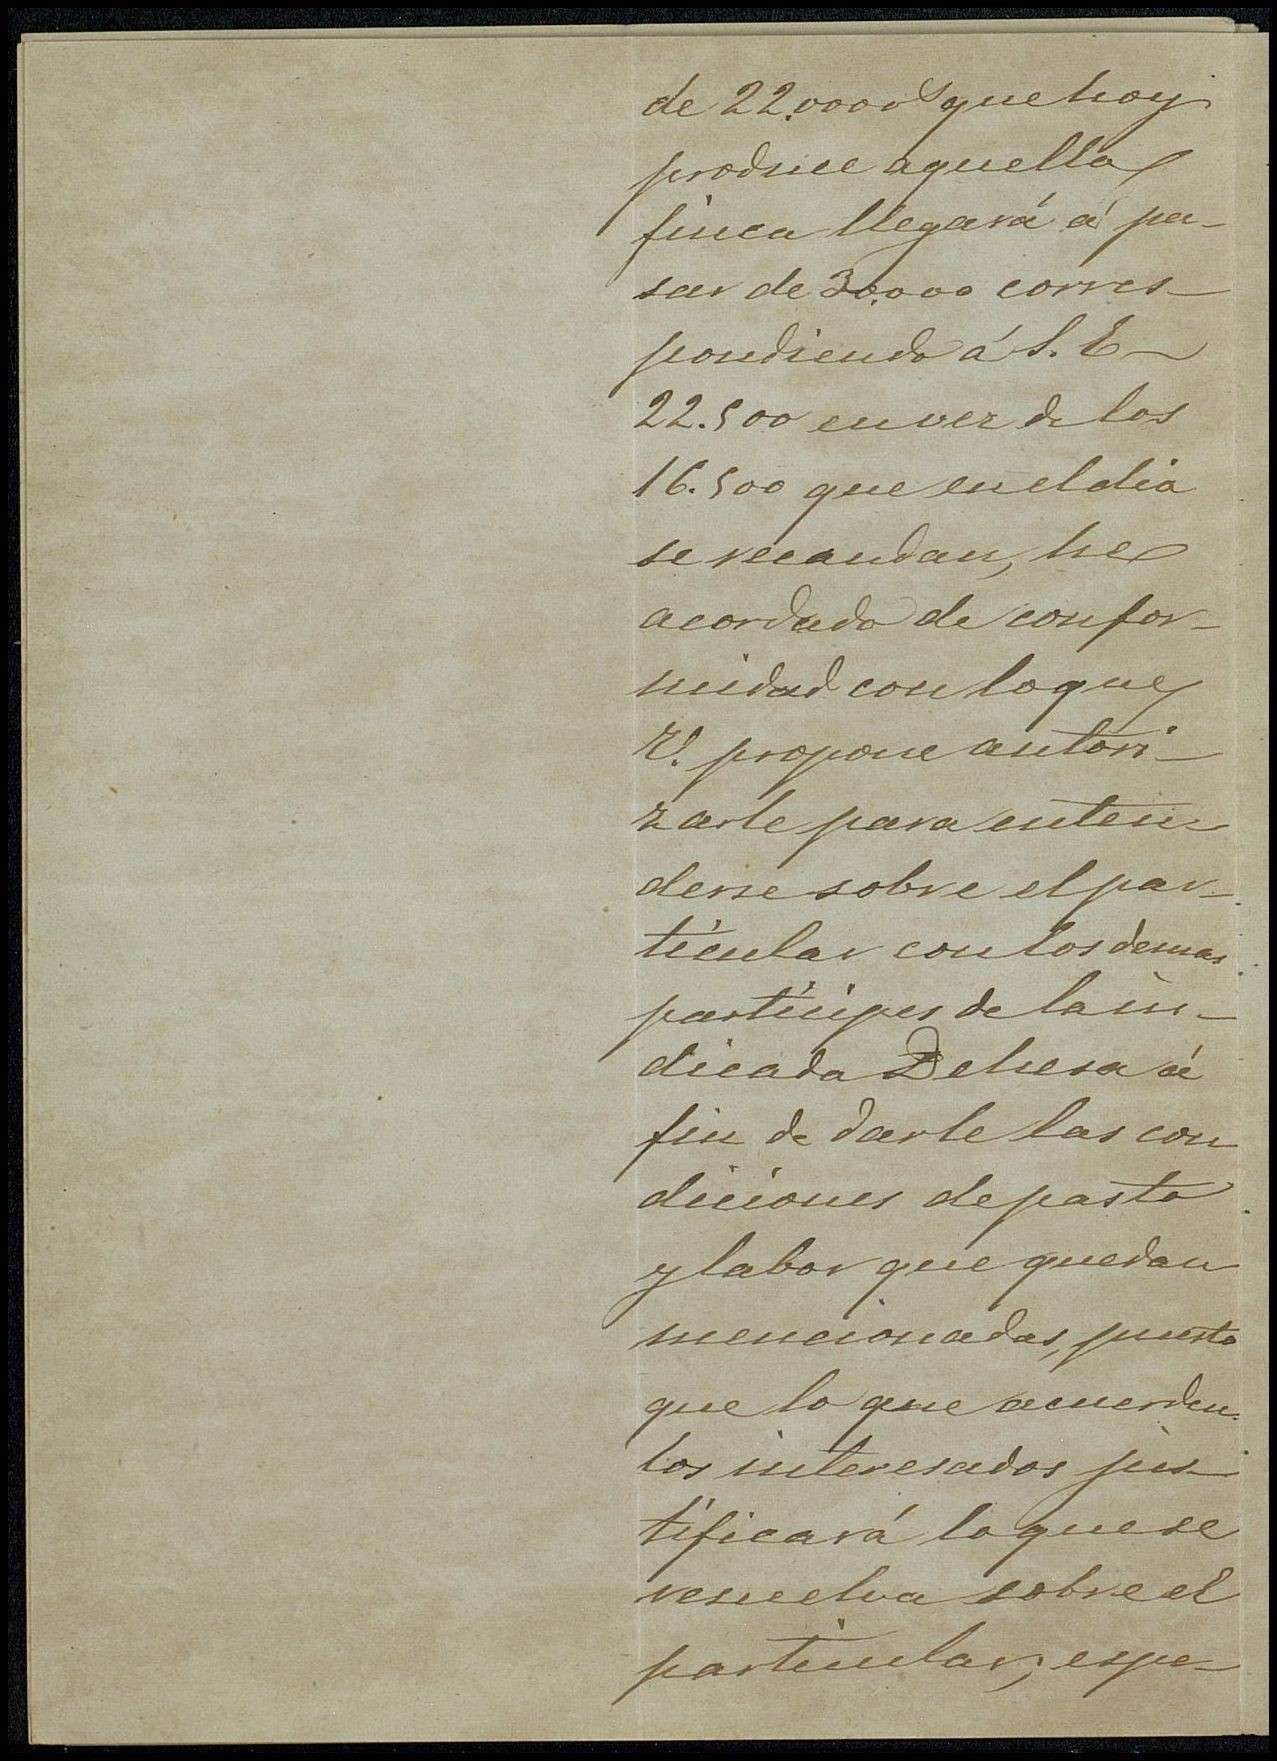 de 22.000 que hoy
produce aquella
finca llegará á pa-
sar de 30.000 corres-
pondiendo á S. E
22.500 en vez de los
16.500 que en el dia
se recaudan, he
acordado de confor-
midad con lo que
V. propone autori-
zarle para enten
derse sobre el par-
ticular con los demas
partícipes de la in-
dicada Dehesa á
fin de darle las con
diciones de pasto
y labor que quedan
mencionadas, puesto
que lo que acuerden
los interesados jus-
tificará lo que se
resuelva sobre el
particular; espe-